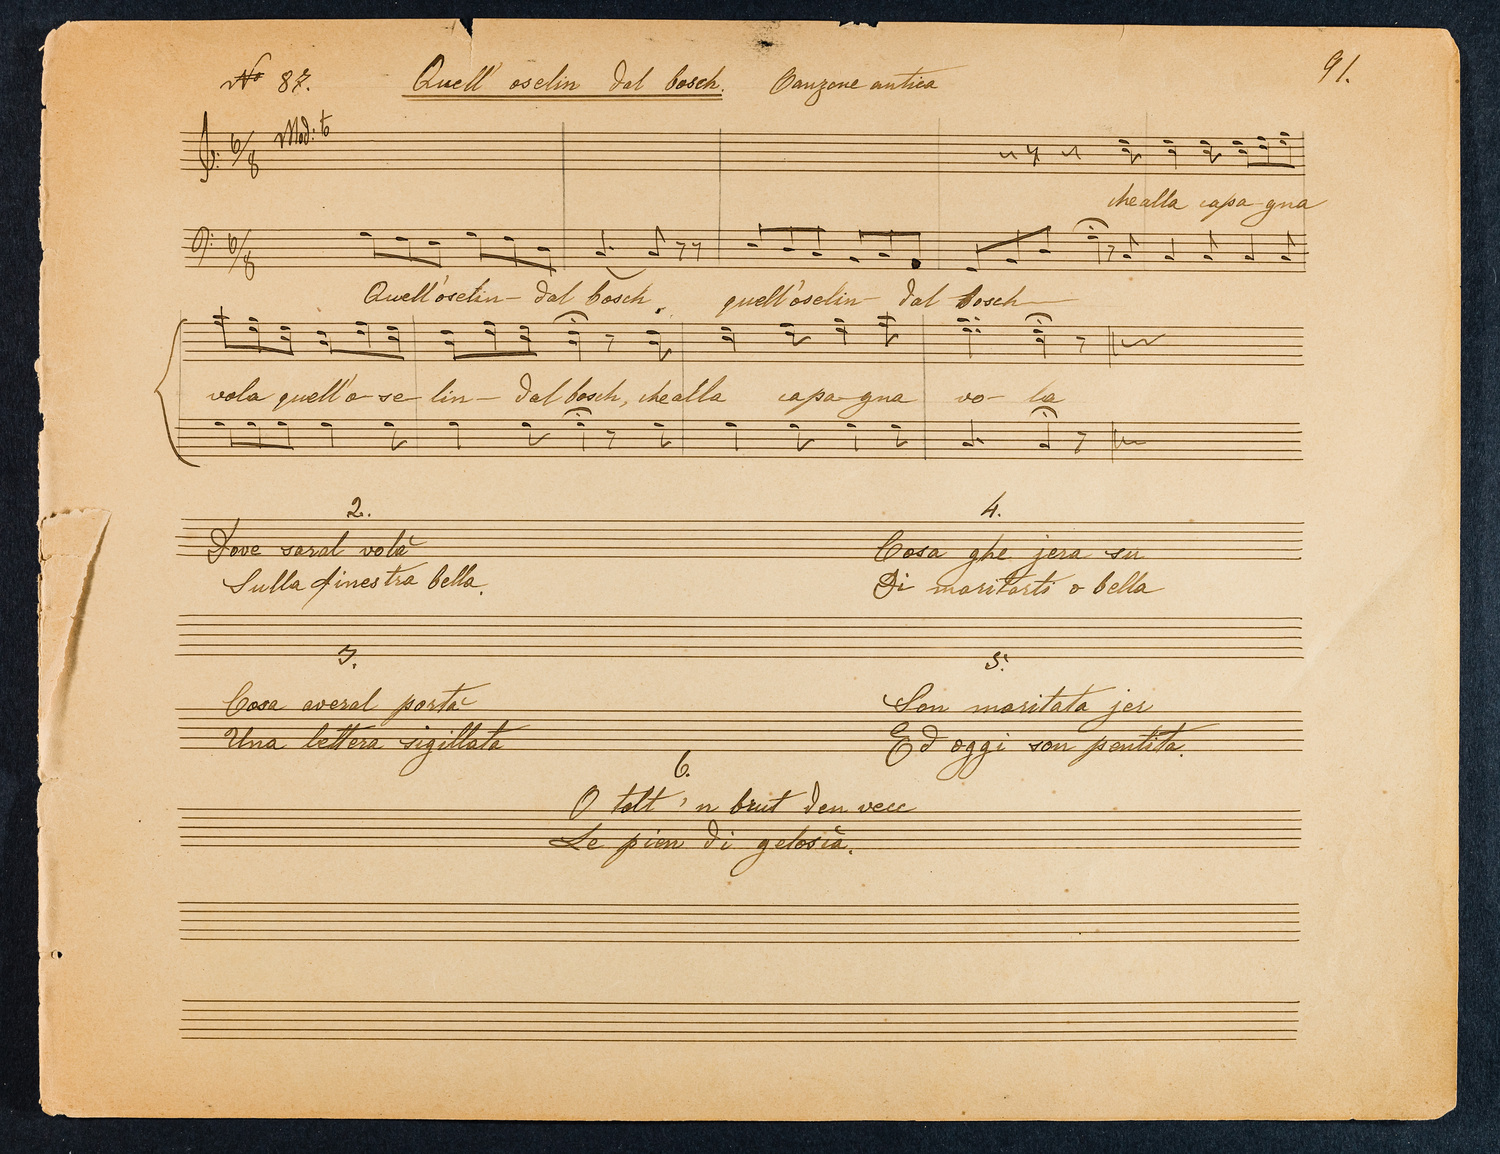 No 87. Quell' oselin dal bosch. Canzone antica 91.
6/8 Mod:to
che alla capa-gna
6/8
Quell'oselin- dal bosch, quell'oselin- dal bosch
vola quell'o-se-lin- dal bosch, che alla capa-gna vo-la
2.
Dove saral volà
Sulla finestra bella.
3.
Cosa averal portà
Una lettera sigillata
4.
Cosa ghe jera su
Di maritarti o bella
5.
Son maritata jer
Ed oggi son pentita.
6.
O tolt 'n brut den vecc
Le pien di gelosià.